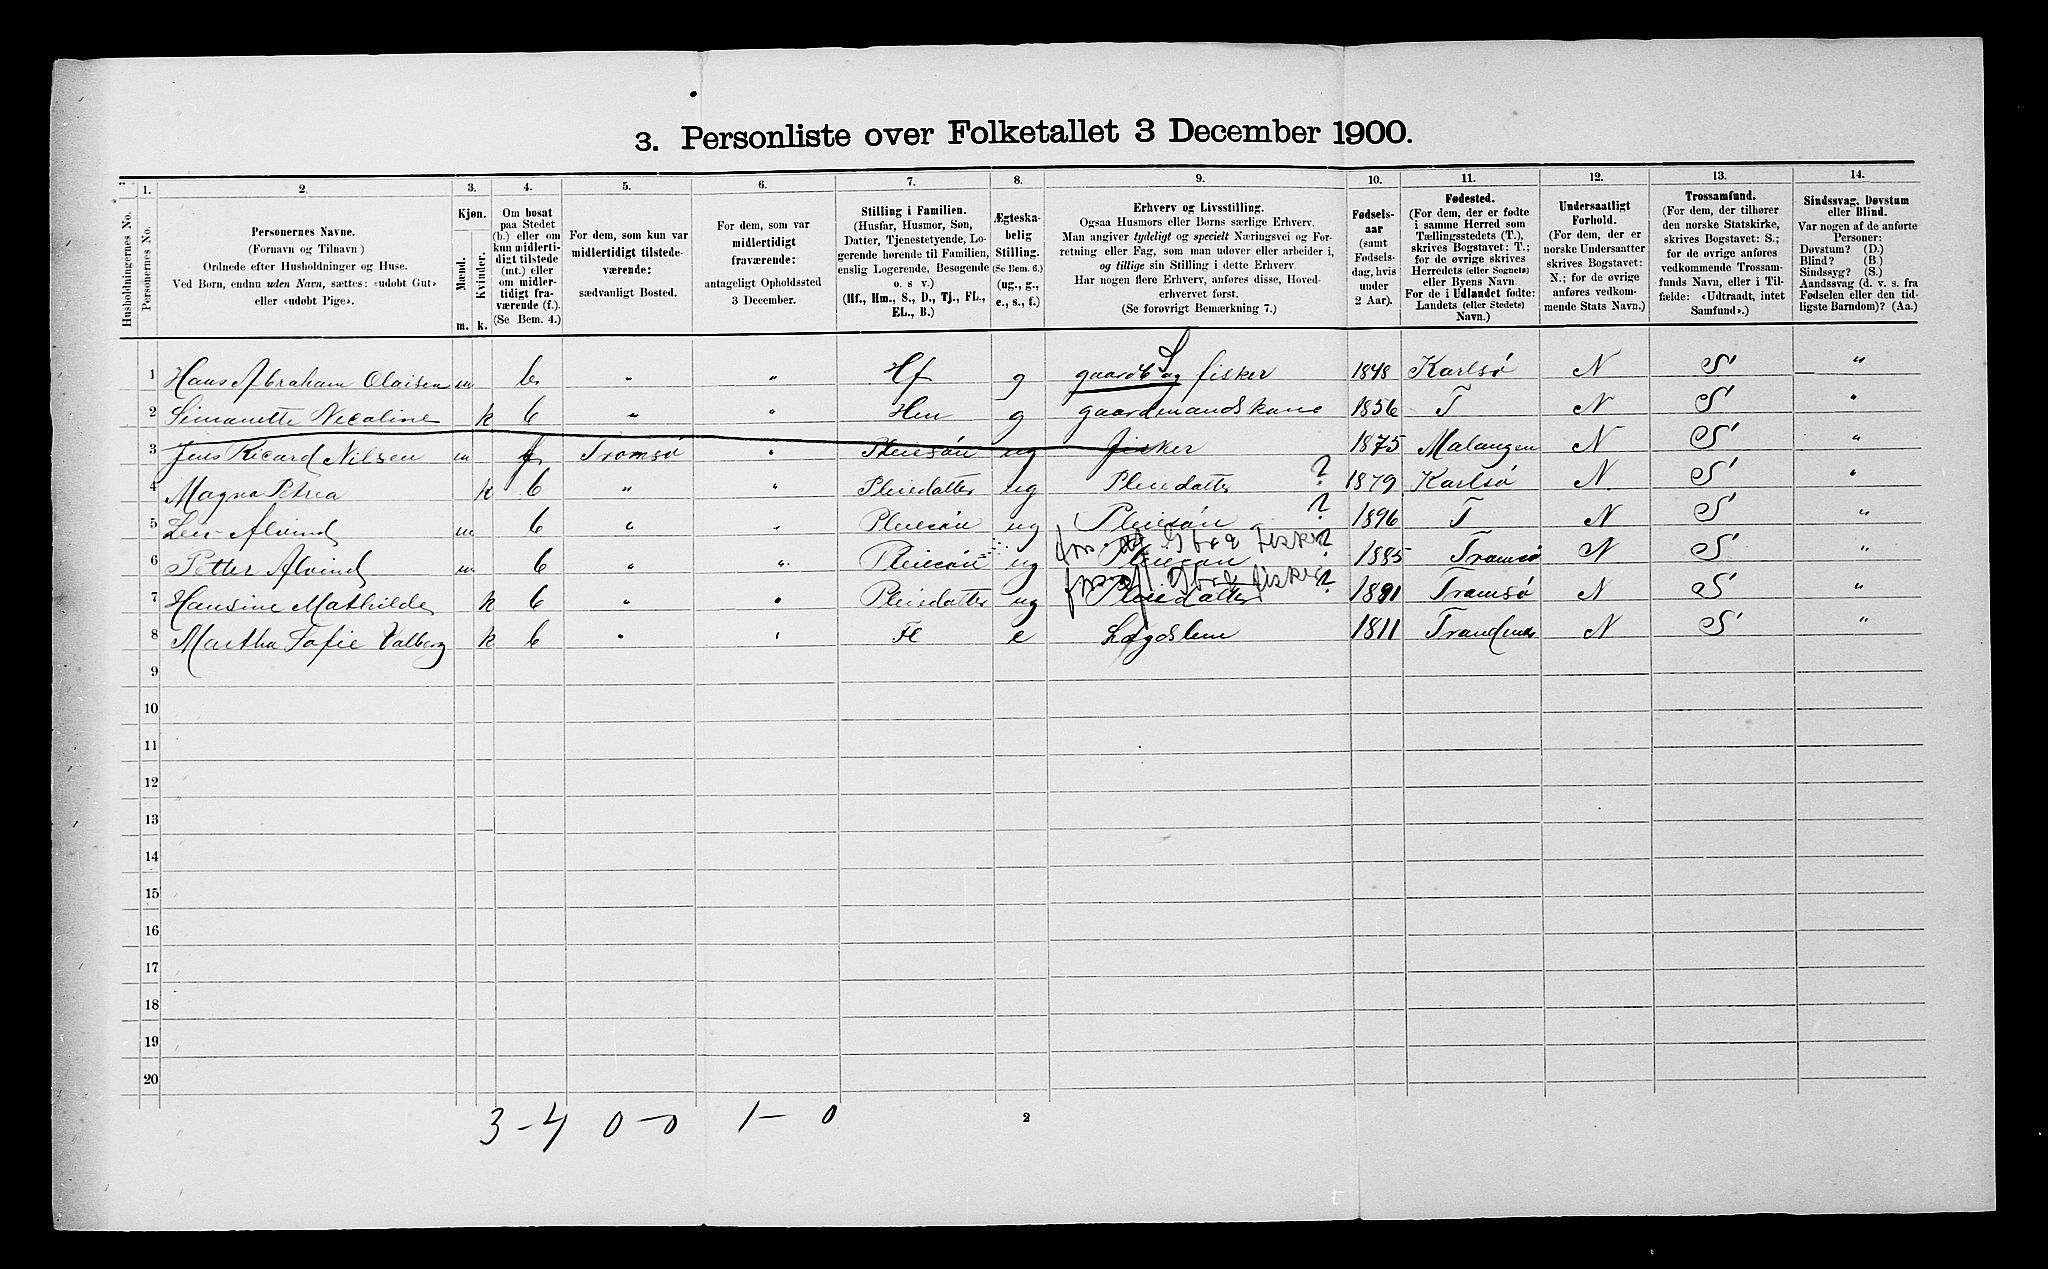 3. Personliste over Folketallet 3 December 1900.
Husholdningernes No.
1. Personernes No.
2. Personernes Navne.
(Fornavn og Tilnavn)
Ordnede efter Husholdninger og Huse.
Ved Børn, endnu uden Navn, sættes: «udøbt Gut»
eller «udøbt Pige».
3. Kjøn.
Mænd. Kvinder.
m. k.
4. Om bosat
paa Stedet
(b.) eller om
kun midlerti-
digt tilstede
(mt.) eller
om midler-
tidigt fra-
værende (f.).
(Se Bem. 4.)
5. For dem, som kun var
midlertidigt tilstede-
værende:
sædvanligt Bosted.
6. For dem, som var
midlertidigt
fraværende:
antageligt Opholdssted
3 December.
7. Stilling i Familien.
(Husfar, Husmor, Søn,
Datter, Tjenestetyende, Lo-
gerende hørende til Familien,
enslig Logerende, Besøgende
o. s v.)
(Hf., Hm., S., D., Tj., FL.,
EL., B.)
8. Ægteska-
belig
Stilling.
(Se Bem. 6.)
(ug., g.,
e., s., f.)
9. Erhverv og Livsstilling.
Ogsaa Husmors eller Børns særlige Erhverv.
Man angiver tydeligt og specielt Næringsvei og For-
retning eller Fag, som man udøver eller arbeider i,
og tillige sin Stilling i dette Erhverv.
Har nogen flere Erhverv, anføres disse, Hoved-
erhvervet først.
(Se forøvrigt Bemærkning 7.)
10. Fødsels-
aar
(samt
Fødsels-
dag, hvis
under
2 Aar).
11. Fødested.
(For dem, der er fødte
i samme Herred som
Tællingsstedets (T.),
skrives Bogstavet: T.;
for de øvrige skrives
Herredets (eller Sognets)
eller Byens Navn
For de i Udlandet fødte:
Landets (eller Stedets)
Navn.)
12. Undersaatligt
Forhold.
(For dem, der er
norske Undersaatter
skrives Bogstavet:
N.; for de øvrige
anføres vedkom-
mende Stats Navn.)
13. Trossamfund.
(For dem, der tilhører
den norske Statskirke,
skrives Bogstavet: S.;
for de øvrige anføres
vedkommende Trossam-
funds Navn, eller i Til-
fælde: «Udtraadt, intet
Samfund».)
14. Sindssvag, Døvstum
eller Blind.
Var nogen af de anførte
Personer:
Døvstum? (D.)
Blind? (B.)
Sindssyg? (S.)
Aandssvag (d. v. s. fra
Fødselen eller den tid-
ligste Barndom)? (Aa.)
1 Hans Abraham Olaisen m b " " Hf g gaardb S og fisker 1848 Karlsø N S "
2 Simonette Nicoline k b " " Hm g gaardmandskone 1856 T N S "
3 Jens Ricard Nilsen m Tromsø " Pleiesøn ug fisker 1875 Malangen N S "
4 Magna Petria k b " " Pleiedatter ug Pleiedatter ? 1879 Karlsø N. S "
5 Alvind m b " " Pleiesøn ug Pleiesøn ? 1896 T N S "
6 Petter Alvind m b " " Pleiesøn ug Pleiesøn ? 1885 Tromsø N S "
7 Hansine Mathilde k b " " Pleiedatter ug Pleiedatter ? 1891 Tromsø N S "
8 Martha Tofie Valberg k b " " Fl e Lægdslem 1811 Trandenes N S "
9
10
11
12
13
14
15
16
17
18
19
20
3-4 0-0 1-0 2